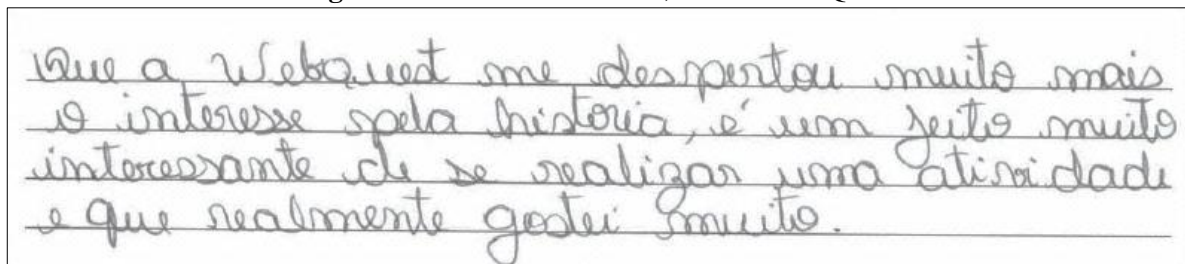 Que a WebQuest me despertou muito mais
o interesse pela historia, é um jeito muito
interessante de se realizar uma atividade
e que realmente gostei muito.